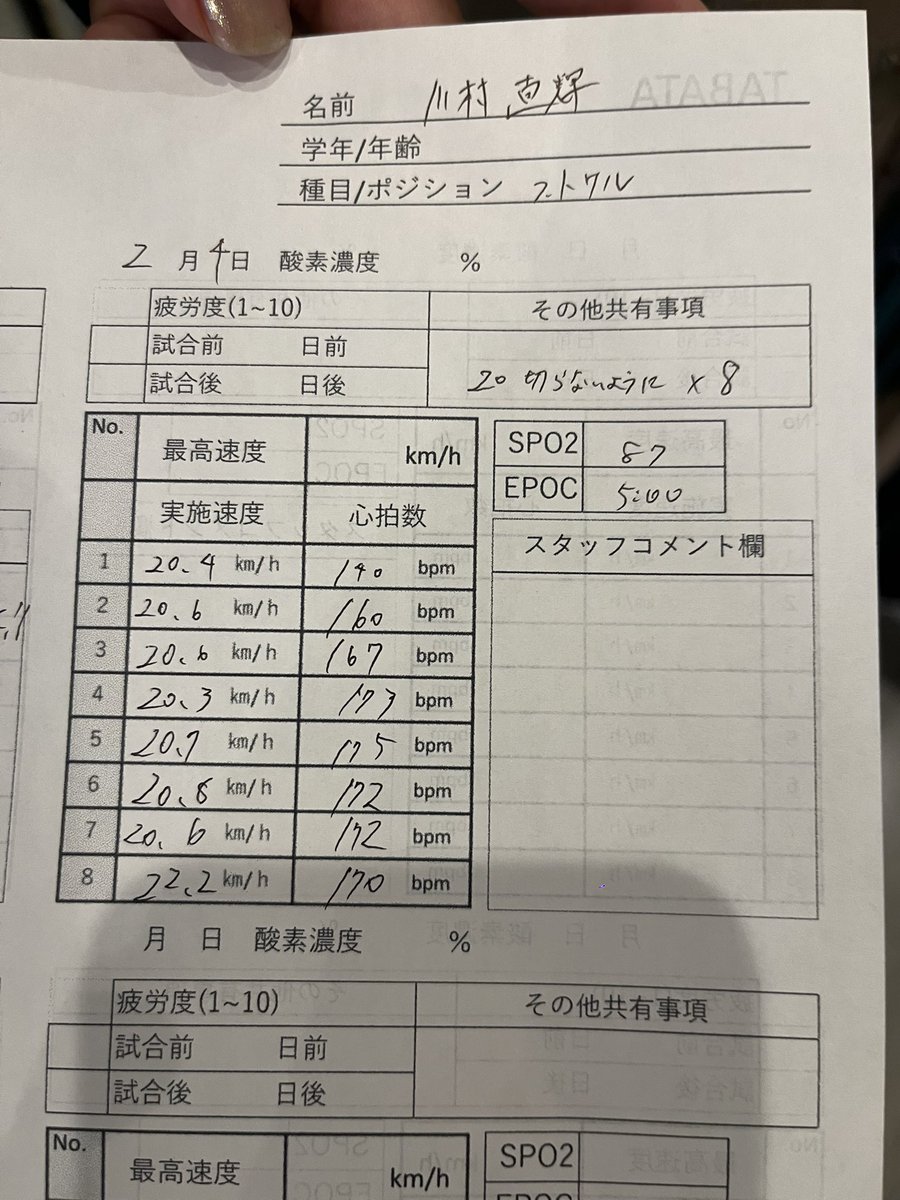 名前 川村 直輝
学年/年齢
種目/ポジション フットサル
2月4日 酸素濃度 %
疲労度(1~10) その他共有事項
試合前 日前
試合後 日後 20 切らないように × 8
No. 最高速度 km/h
実施速度 心拍数
SPO2 87
EPOC 5:00
スタッフコメント欄
1 20.4 km/h 140 bpm
2 20.6 km/h 160 bpm
3 20.6 km/h 167 bpm
4 20.3 km/h 173 bpm
5 20.7 km/h 175 bpm
6 20.8 km/h 172 bpm
7 20.6 km/h 172 bpm
8 22.2 km/h 170 bpm
月 日 酸素濃度 %
疲労度(1~10) その他共有事項
試合前 日前
試合後 日後
No. 最高速度 km/h
SPO2
EPOC
TABATA